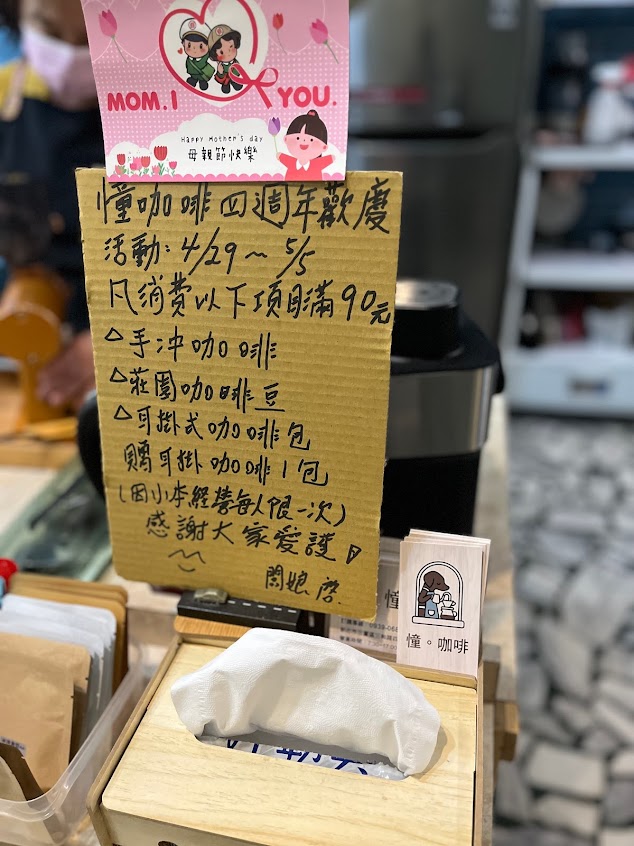 MOM. I YOU.
Happy Mother's day
母親節快樂
憧咖啡四週年歡慶
活動: 4/29～5/5
凡消費以下項目滿90元
△手冲咖啡
△莊園咖啡豆
△耳掛式咖啡包
贈耳掛咖啡1包
(因小本經營每人限一次)
感謝大家愛護
闆娘 啓
憧。咖啡